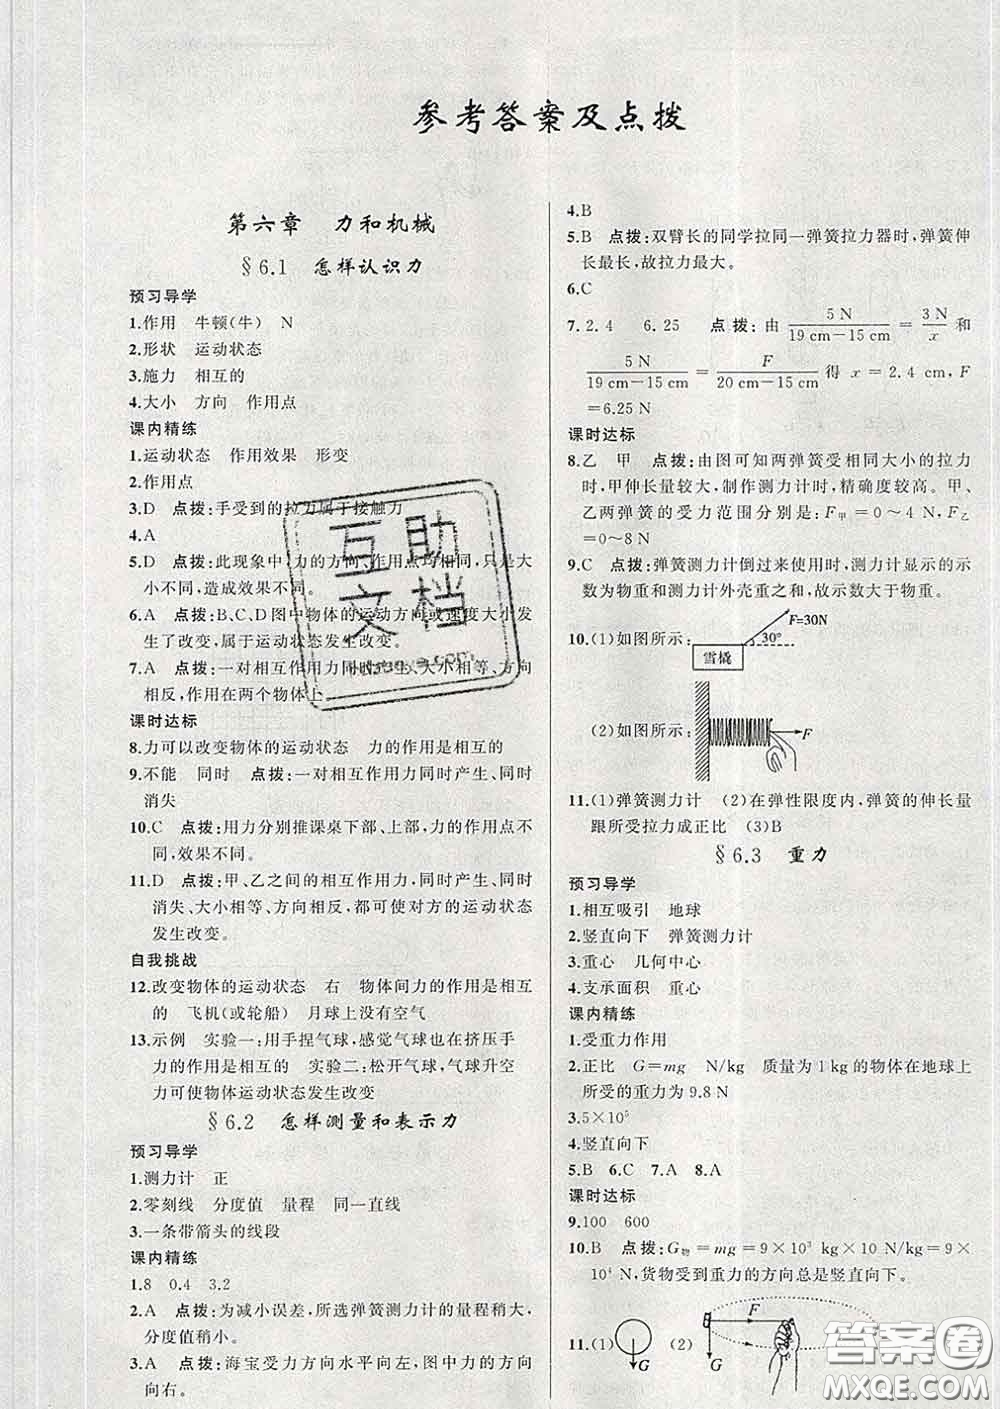 参考答案及点拨
第六章 力和机械
§6.1 怎样认识力
预习导学
1.作用 牛顿(牛) N
2.形状 运动状态
3.施力 相互的
4.大小 方向 作用点
课内精练
1.运动状态 作用效果 形变
2.作用点
3.D 点拨:手受到的拉力属于接触力
4.A
5.D 点拨:此现象中,力的方向、作用点均相同,只是大
小不同,造成效果不同。
6.A 点拨:B、C、D图中物体的运动方向或速度大小发
生了改变,属于运动状态发生改变。
7.A 点拨:一对相互作用力同时产生、大小相等、方向
相反,作用在两个物体上
课时达标
8.力可以改变物体的运动状态 力的作用是相互的
9.不能 同时 点拨:一对相互作用力同时产生、同时
消失
10.C 点拨:用力分别推课桌下部、上部,力的作用点不
同,效果不同。
11.D 点拨:甲、乙之间的相互作用力,同时产生、同时
消失、大小相等、方向相反,都可使对方的运动状态
发生改变。
自我挑战
12.改变物体的运动状态 右 物体间力的作用是相互
的 飞机(或轮船) 月球上没有空气
13.示例 实验一:用手捏气球,感觉气球也在挤压手
力的作用是相互的 实验二:松开气球,气球升空
力可使物体运动状态发生改变
§6.2 怎样测量和表示力
预习导学
1.测力计 正
2.零刻线 分度值 量程 同一直线
3.一条带箭头的线段
课内精练
1.8 0.4 3.2
2.A 点拨:为减小误差,所选弹簧测力计的量程稍大,
分度值稍小。
3.A 点拨:海宝受力方向水平向左,图中力的方向
向右。
4.B
5.B 点拨:双臂长的同学拉同一弹簧拉力器时,弹簧伸
长最长,故拉力最大。
6.C
7.2.4 6.25 点拨:由 5 N/19 cm−15 cm = 3 N/x 和
5 N/19 cm−15 cm = F/20 cm−15 cm 得 x=2.4 cm,F
=6.25 N
课时达标
8.乙 甲 点拨:由图可知两弹簧受相同大小的拉力
时,甲伸长量较大,制作测力计时,精确度较高。甲、
乙两弹簧的受力范围分别是:F甲=0～4 N,F乙
=0～8 N
9.C 点拨:弹簧测力计倒过来使用时,测力计显示的示
数为物重和测力计外壳重之和,故示数大于物重。
10.(1)如图所示: 雪橇 30° F=30N
(2)如图所示: F
11.(1)弹簧测力计 (2)在弹性限度内,弹簧的伸长量
跟所受拉力成正比 (3)B
§6.3 重力
预习导学
1.相互吸引 地球
2.竖直向下 弹簧测力计
3.重心 几何中心
4.支承面积 重心
课内精练
1.受重力作用
2.正比 G=mg N/kg 质量为1 kg的物体在地球上
所受的重力为9.8 N
3.5×10⁵
4.竖直向下
5.B 6.C 7.A 8.A
课时达标
9.100 600
10.B 点拨:G物=mg=9×10³ kg×10 N/kg=9×
10⁴ N,货物受到重力的方向总是竖直向下。
11.(1) G (2) F G
互助文档
答案圈
MXQE.COM